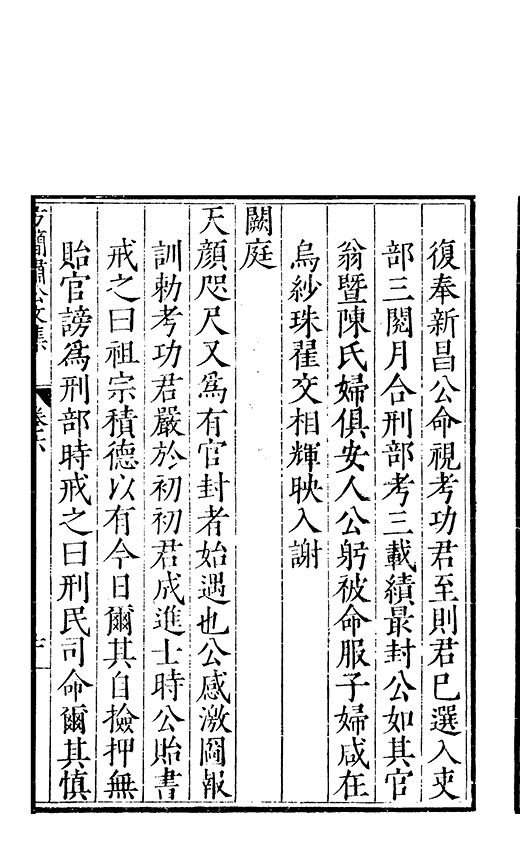 復奉新昌公命視考功君至則君已選入吏
部三閱月合刑部考三載績最封公如其官
翁暨陳氏婦俱安人公躬被命服子婦咸在
烏紗珠翟交相輝映入謝
闕庭
天顔咫尺又為有官封者始遇也公感激圖報
訓勅考功君嚴於初初君成進士時公貽書
戒之曰祖宗積德以有今日爾其自撿押無
貽官謗為刑部時戒之曰刑民司命爾其慎
方簡肅公文集
卷六